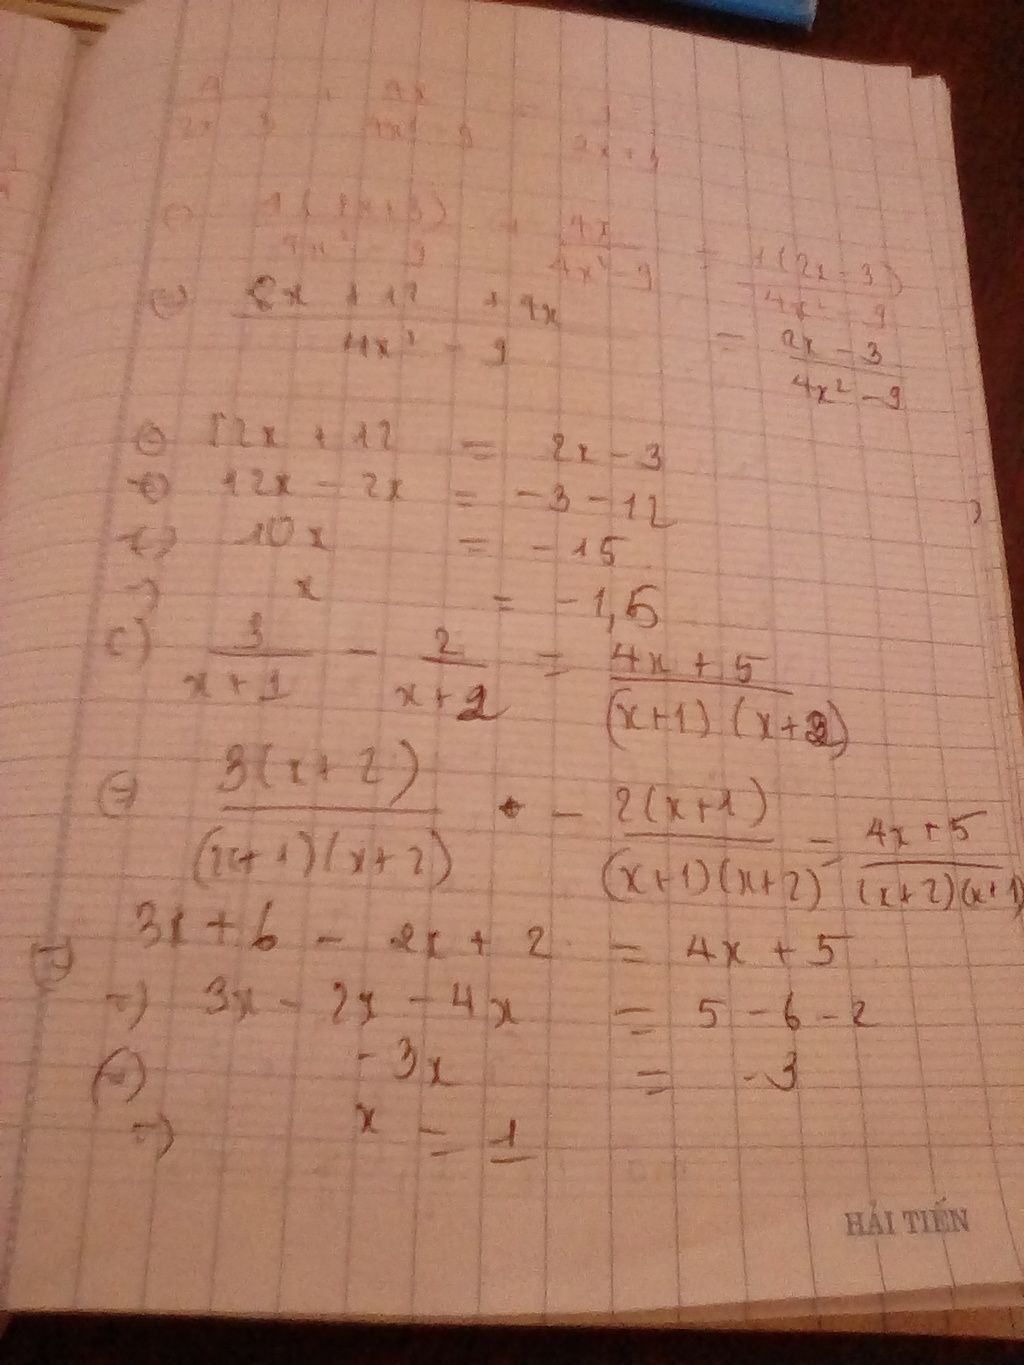 2x 3 + 4x² - 9 = 2x + 3
4x² - 9 + 4x / 4x² - 9 = 1(2x - 3) / 4x² - 9
8x + 12 + 4x / 4x² - 9 = 2x - 3 / 4x² - 9
⇔ 12x + 12 = 2x - 3
⇔ 12x - 2x = -3 - 12
⇔ 10x = -15
⇒ x = -1,5
c) 3 / x + 1 - 2 / x + 2 = 4x + 5 / (x+1)(x+2)
⇔ 3(x+2) / (x+1)(x+2) - 2(x+1) / (x+1)(x+2) = 4x + 5 / (x+2)(x+1)
⇔ 3x + 6 - 2x + 2 = 4x + 5
⇒ 3x - 2x - 4x = 5 - 6 - 2
⇔ -3x = -3
⇒ x = 1
HẢI TIẾN